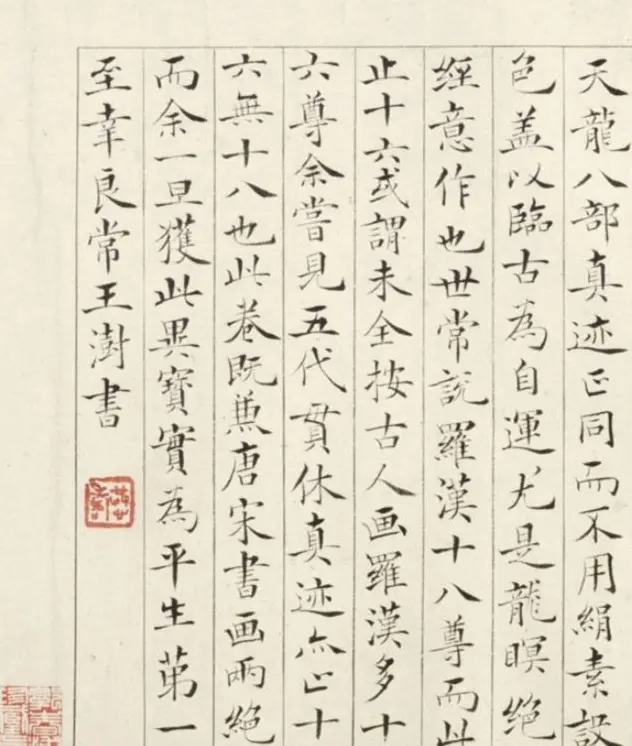 天龍八部真迹正同而不用絹素設
色盖以臨古為自運尤是龍瞑絕
經意作也世常説羅漢十八尊而此
止十六或謂未全按古人画羅漢多十
六尊余嘗見五代貫休真迹亦止十
六無十八也此卷既兼唐宋書画兩絕
而余一旦獲此異寶實為平生苐一
至幸良常王澍書